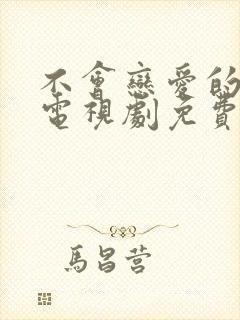 不會戀愛的
電視劇免費
馬昌营